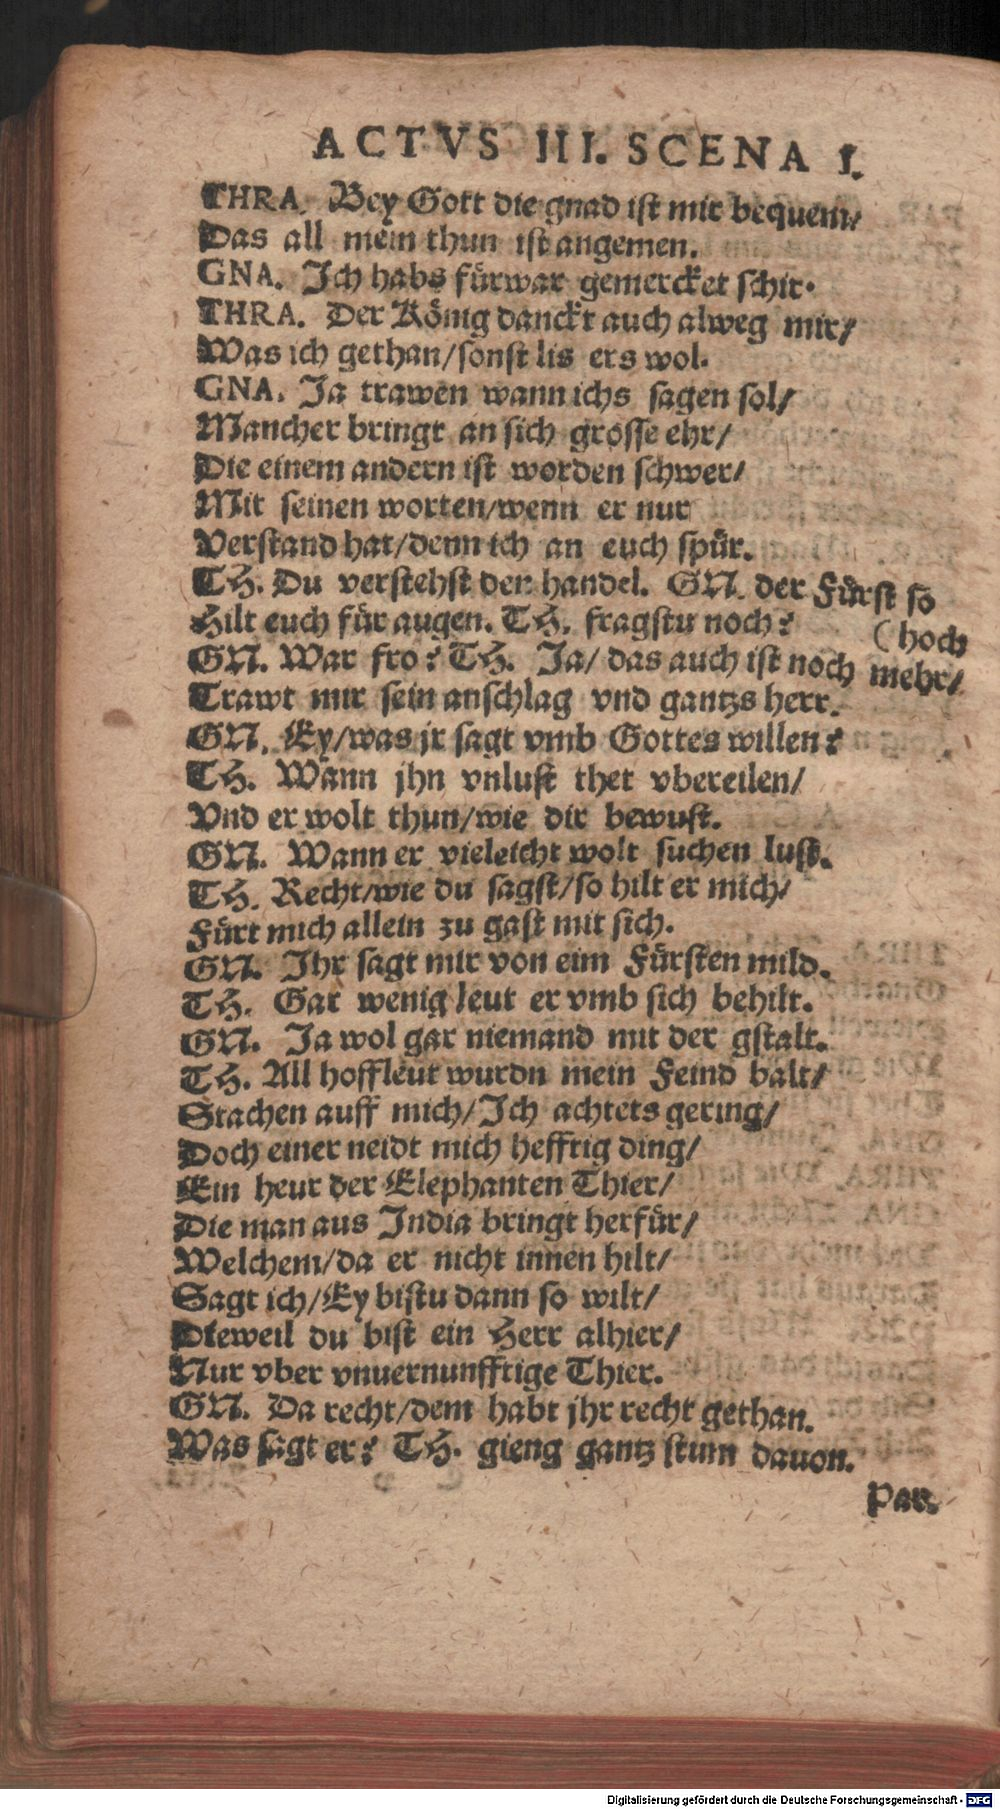 ACTVS III. SCENA I.
THRA. Bey Gott die gnad ist mir bequem/
Das all mein thun ist angemen.
GNA. Ich habs fürwar gemercket schir.
THRA. Der König danckt auch alweg mir/
Was ich gethan/sonst lis ers wol.
GNA. Ja trawen wann ichs sagen sol/
Mancher bringt an sich grosse ehr/
Die einem andern ist worden schwer/
Mit seinen worten/wenn er nur
Verstand hat/denn ich an euch spür.
TH. Du verstehst den handel. GN. der Fürst so
Hilt euch für augen. TH. fragstu noch? (hoch
GN. War fro? TH. Ja/ das auch ist noch mehr/
Trawt mir sein anschlag vnd gantzs herr.
GN. Ey/was jr sagt vmb Gottes willen?
TH. Wann jhn vnlust thet vbereilen/
Vnd er wolt thun/wie dir bewust.
GN. Wann er vieleicht wolt suchen lust.
TH. Recht/wie du sagst/so hilt er mich/
Fürt mich allein zu gast mit sich.
GN. Ihr sagt mir von eim Fürsten mild.
TH. Gar wenig leut er vmb sich behilt.
GN. Ja wol gar niemand mit der gstalt.
TH. All hoffleut wurdn mein Feind balt/
Stachen auff mich/Ich achtets gering/
Doch einer neidt mich hefftig ding/
Ein heur der Elephanten Thier/
Die man aus India bringt herfür/
Welchem/da er nicht innen hilt/
Sagt ich/Ey bistu dann so wilt/
Dieweil du bist ein Herr alhier/
Nur vber vnuernunfftige Thier.
GN. Da recht/dem habt jhr recht gethan.
Was sagt er? TH. gieng gantz stum dauon.
Par.
Digitalisierung gefördert durch die Deutsche Forschungsgemeinschaft - DFG